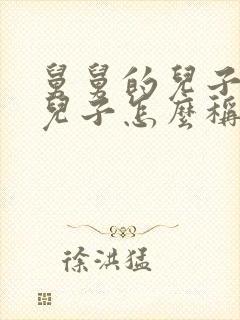 舅舅的兒子
兒子怎麼稱
徐洪猛